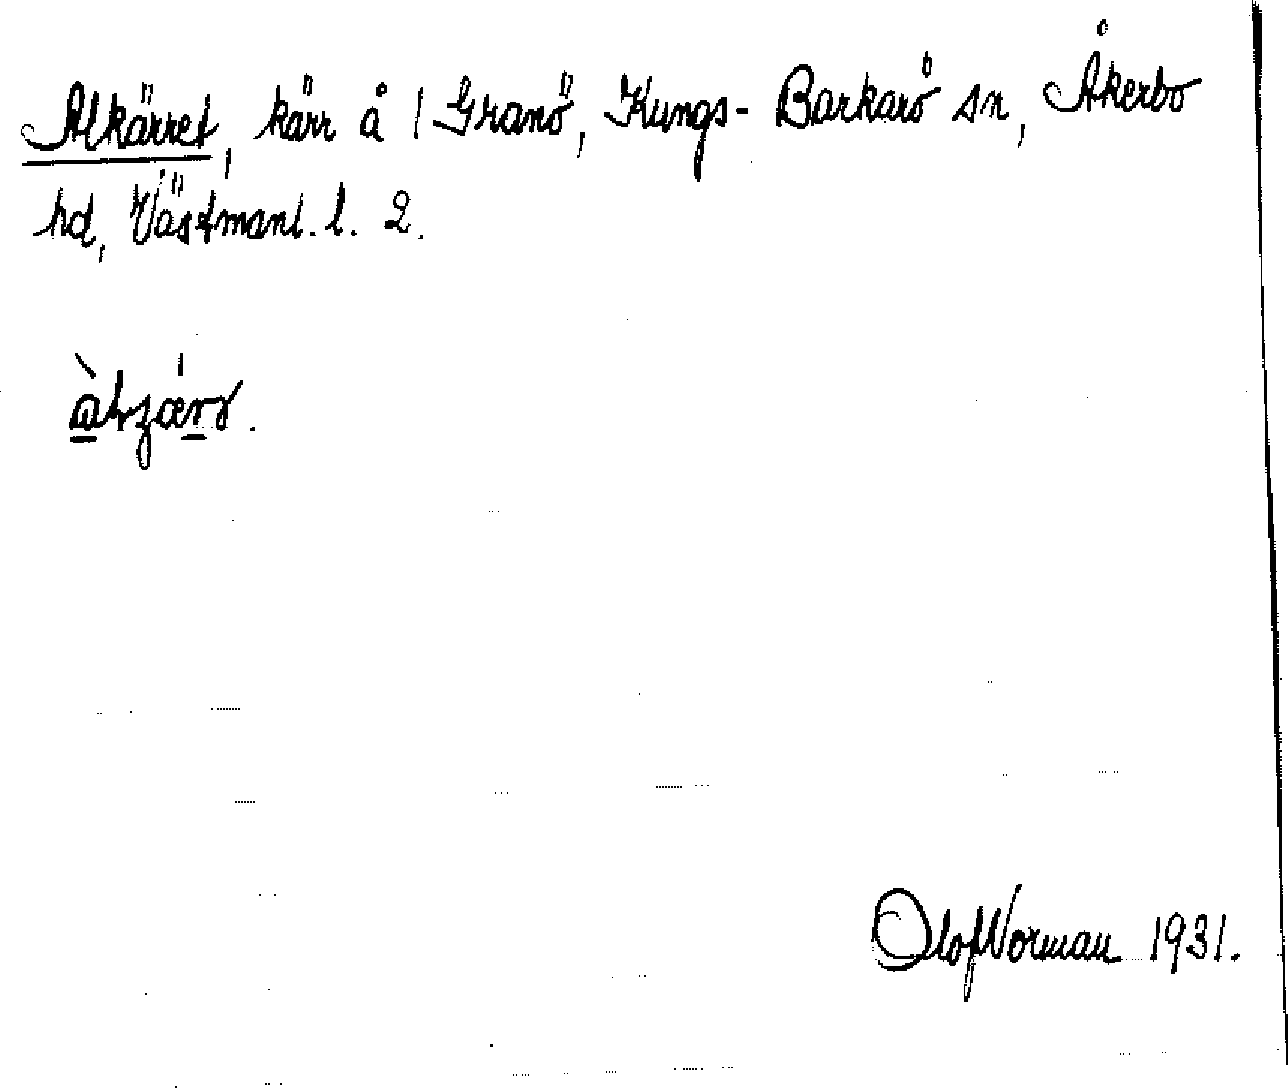 Alkärret, kärr å 1 Granö, Kungs-Barkarö sn, Åkerbo
hd, Västmanl. l. 2.
Olof Norman 1931.